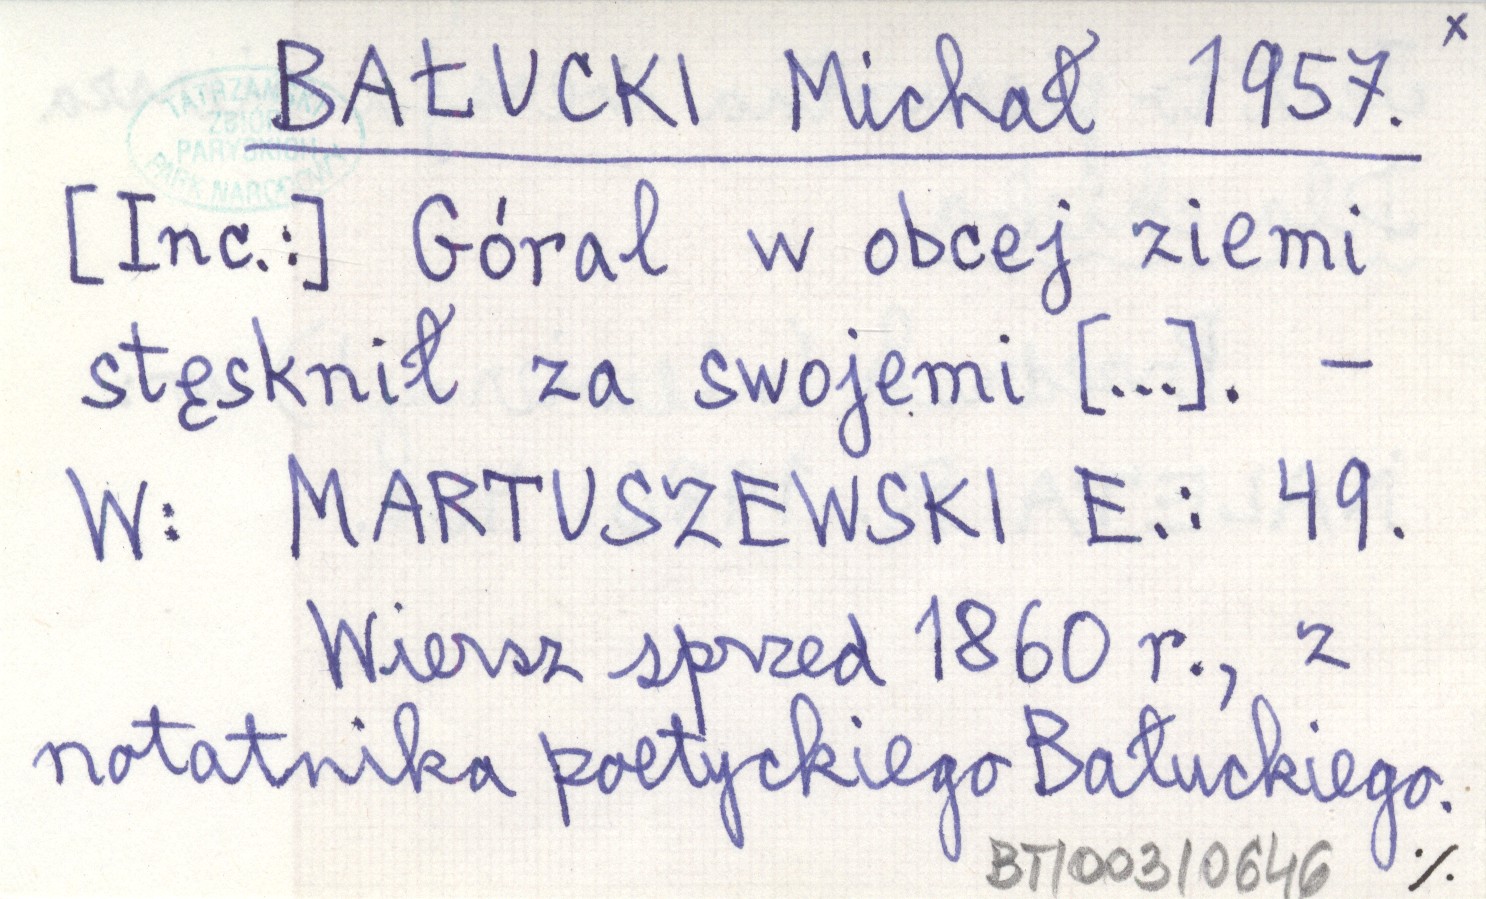 BAŁUCKI Michał 1957. x
[Inc.:] Góral w obcej ziemi
stęsknił za swojemi [...]. –
W: MARTUSZEWSKI E.: 49.
Wiersz sprzed 1860 r., z
notatnika poetyckiego Bałuckiego.
BT/003/0646 ./.
TATRZAŃSKI
ZBIOR
PARYSKICH
PARK NARODOWY